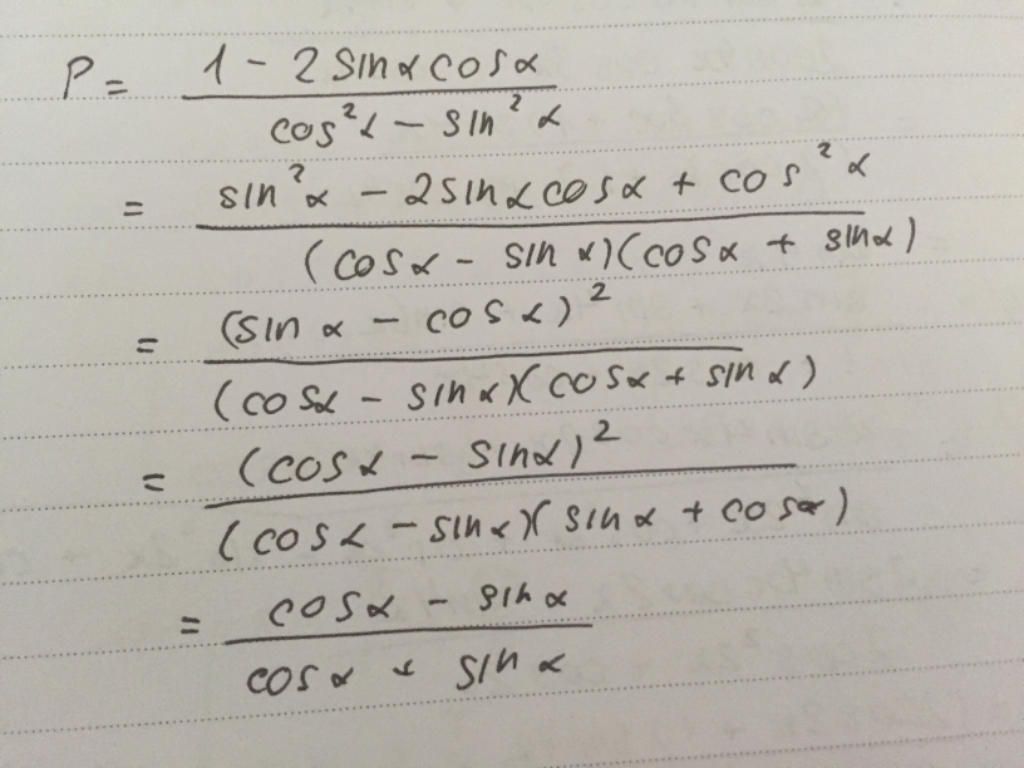 P = (1 - 2 sin α cos α) / (cos² α - sin² α)
= (sin² α - 2 sin α cos α + cos² α) / ((cos α - sin α)(cos α + sin α))
= (sin α - cos α)² / ((cos α - sin α)(cos α + sin α))
= (cos α - sin α)² / ((cos α - sin α)(sin α + cos α))
= (cos α - sin α) / (cos α + sin α)